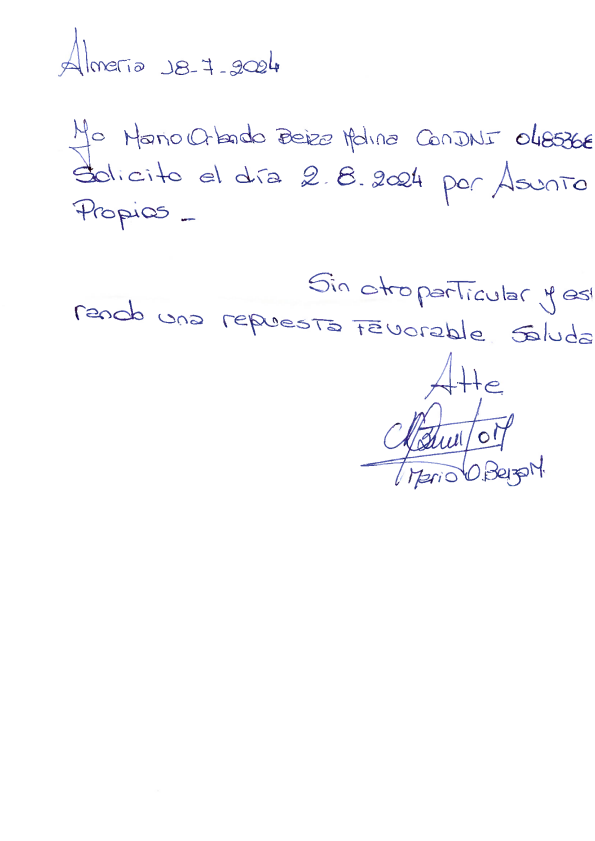 Almeria 18-7-2024
Yo Mario Orlando Beiza Molina Con DNI 0485368
Solicito el día 2.8.2024 por Asunto
Propios -
Sin otro particular y es
rando una repuesta Favorable Saluda
Atte
Mario O. Beiza M.